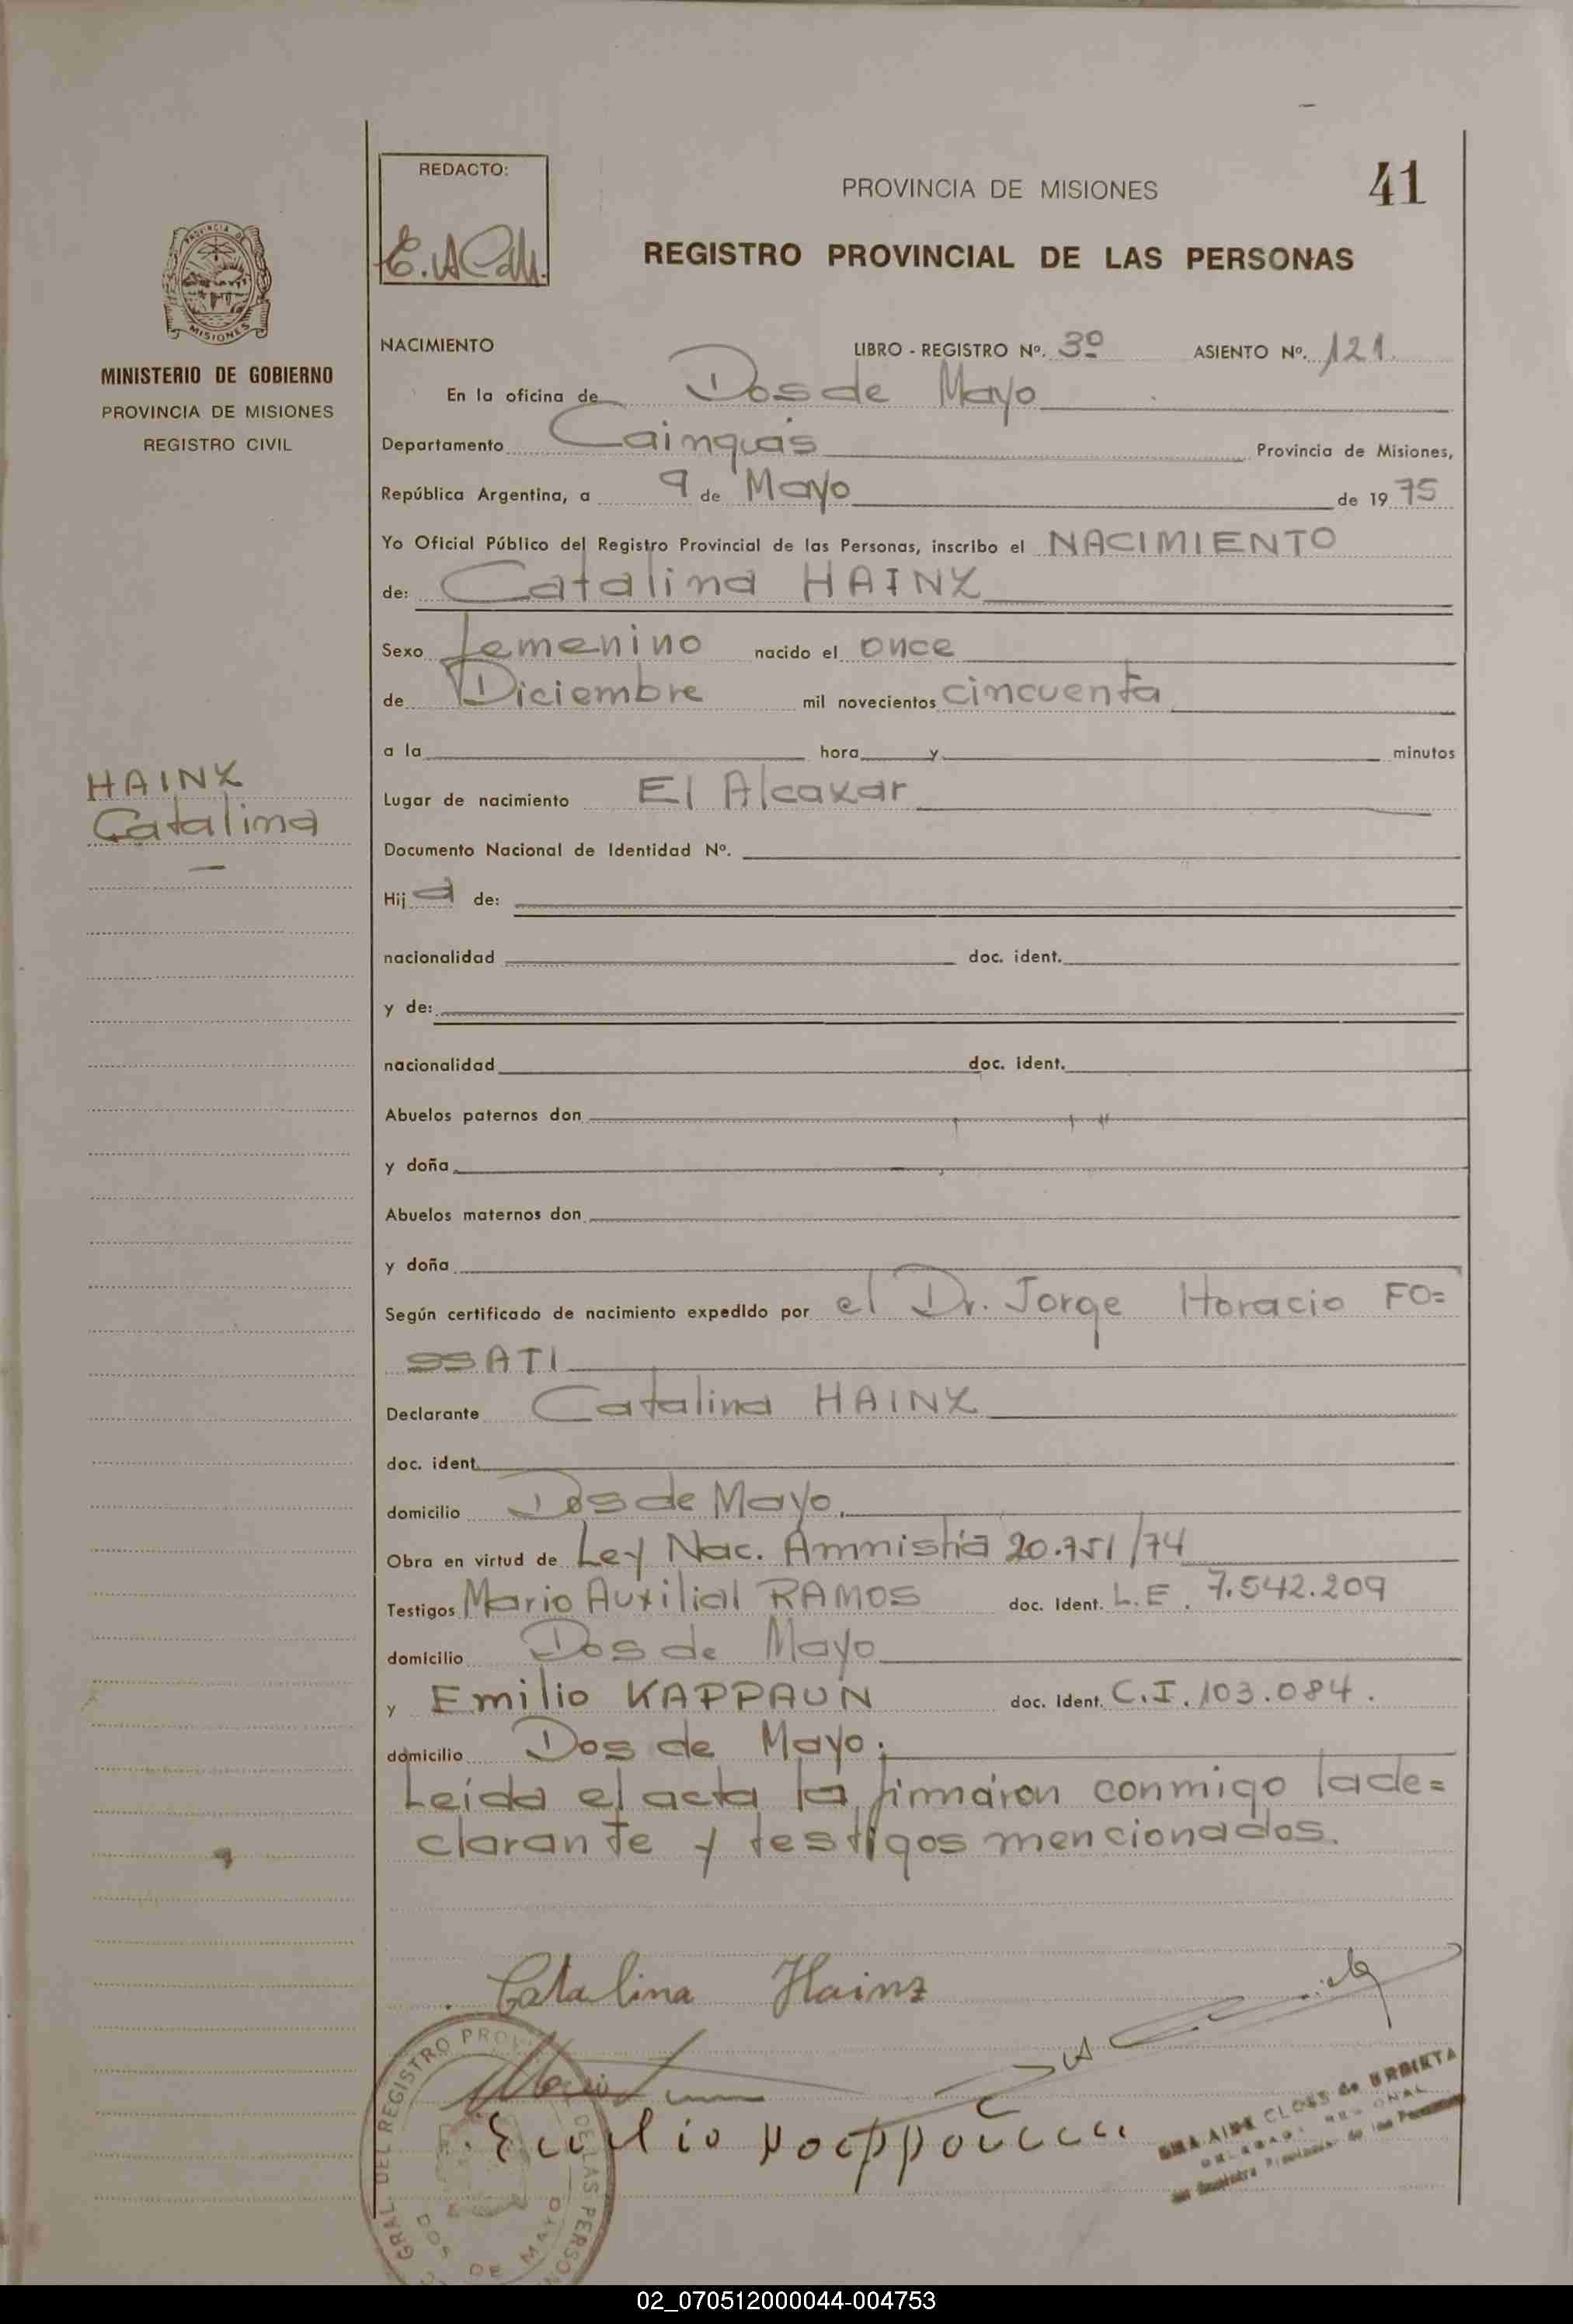 REDACTO:
PROVINCIA DE MISIONES
41
REGISTRO PROVINCIAL DE LAS PERSONAS
MISIONES
MINISTERIO DE GOBIERNO
PROVINCIA DE MISIONES
REGISTRO CIVIL
NACIMIENTO LIBRO - REGISTRO Nº. 3º ASIENTO Nº. 121.
En la oficina de Dos de Mayo
Departamento Cainguás Provincia de Misiones,
República Argentina, a 9 de Mayo de 1975
Yo Oficial Público del Registro Provincial de las Personas, inscribo el NACIMIENTO
de: Catalina HAINZ
Sexo femenino nacido el once
de Diciembre mil novecientos cincuenta
a la hora y minutos
HAINZ
Catalina
Lugar de nacimiento El Alcazar
Documento Nacional de Identidad Nº.
Hija de:
nacionalidad doc. ident.
y de:
nacionalidad doc. ident.
Abuelos paternos don
y doña
Abuelos maternos don
y doña
Según certificado de nacimiento expedido por el Dr. Jorge Horacio FO=
SSATI
Declarante Catalina HAINZ
doc. ident.
domicilio Dos de Mayo.
Obra en virtud de Ley Nac. Amnistía 20.751/74
Testigos Mario Auxilial RAMOS doc. Ident. L.E. 7.542.209
domicilio Dos de Mayo
y Emilio KAPPAUN doc. Ident. C.I. 103.084.
domicilio Dos de Mayo.
Leída el acta la firmáron conmigo la de=
clarante y testigos mencionados.
Catalina Hainz
GRAL. DEL REGISTRO PROV DE LAS PERSON
DOS DE MAYO
AIDE CLOSS de URBIETA
02_070512000044-004753